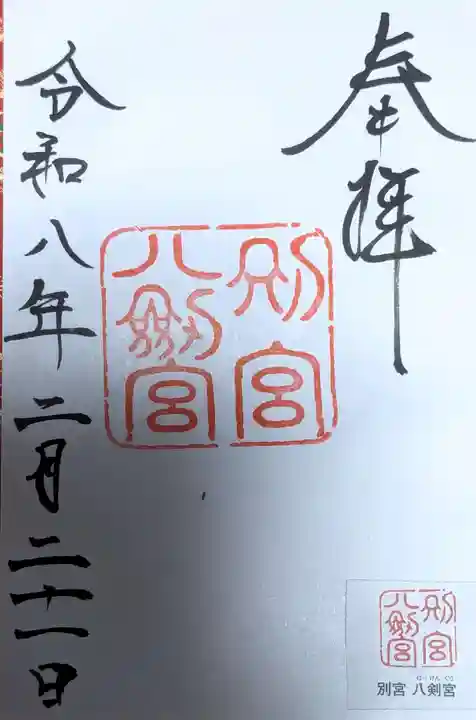 奉拝
別宮
八剣宮
令和八年二月二十一日
別宮
八剣宮
はっけんぐう
別宮 八剣宮